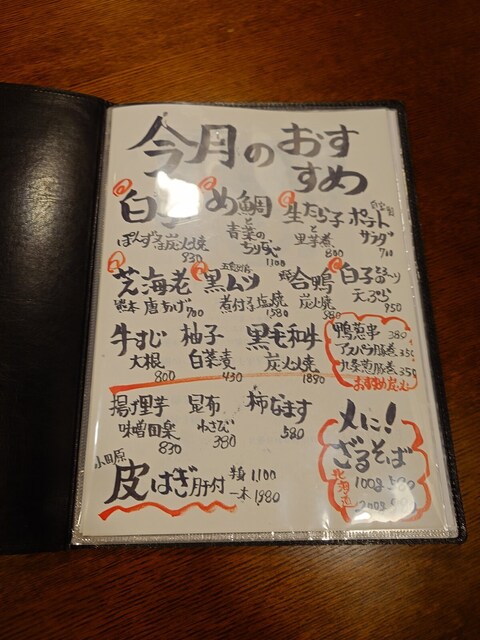 今月のおすすめ
白子 ぽんず 炭火焼 930
め鯛と青菜の 1100
生たら子と里芋煮 800
ポテトサラダ 700
芝海老 唐あげ 700
黒ムツ 煮付 塩焼 1380
合鴨 炭火焼 380
白子 天ぷら 950
牛すじ大根 800
柚子白菜 430
黒毛和牛 炭火焼 1890
鴨葱串 380
アスパラ豚巻 350
九条葱豚巻 350
揚げ里芋 味噌田楽 830
昆布わさび 380
柿なます 580
小田原
皮はぎ肝付 半身 1,100
一本 1980
〆に!
ざるそば
北海道
100g
200g